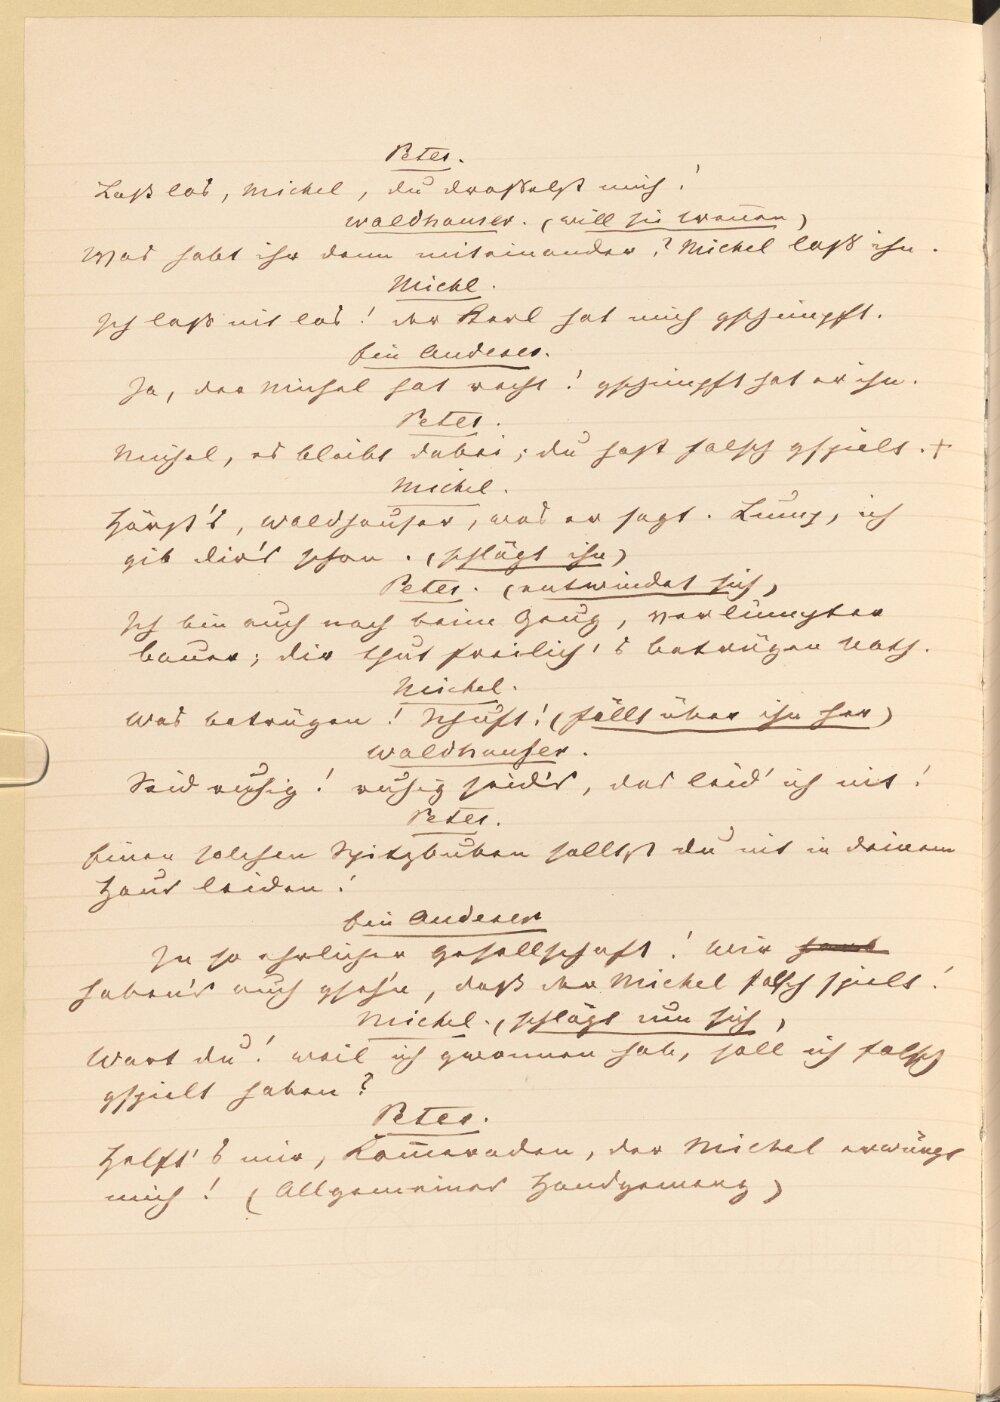 Peter.
Laß los, Michel, du drosselst mich!
Waldhauser. (will sie trennen)
Was habt ihr denn miteinander? Michel laß ihn.
Michl.
Ich laß nit los! der Kerl hat mich gschimpft.
Ein Anderer.
Ja, der Michel hat recht! gschimpft hat er ihn.
Peter.
Michel, es bleibt dabei; du hast falsch gspielt. +
Michel.
Hörst's, Waldhauser, was er sagt. Lump, ich
gib dir's schon. (schlägt ihn)
Peter. (entwindet sich)
Ich bin auch noch beim Zeug, verlumpter
Bauer; dir thut freilich 's betrügen Noth.
Michel.
Was betrügen! Schuft! (fällt über ihn her)
Waldhauser.
Seid ruhig! ruhig seid's, das leid' ich nit!
Peter.
Einen solchen Spitzbuben sollst du nit in deinem
Haus leiden!
Ein Anderer
In so ehrlicher Gesellschaft! Wir
haben's auch gseh'n, daß der Michel falsch spielt!
Michel. (schlägt um sich)
Wart du! weil ich gwonnen hab, soll ich falsch
gspielt haben?
Peter.
Helft's mir, Kam̅eraden, der Michel erwürgt
mich! (Allgemeines Handgemeng)